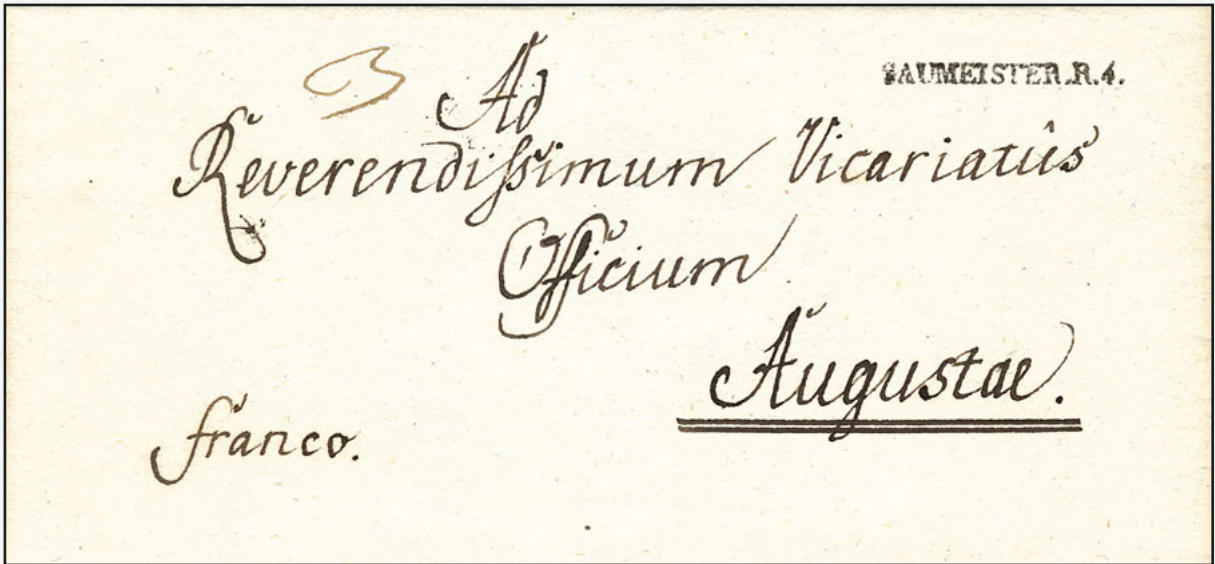 BAUMEISTER.R.4.
Ad
Reverendiſsimum Vicariatûs
Officium
Augustae.
franco.